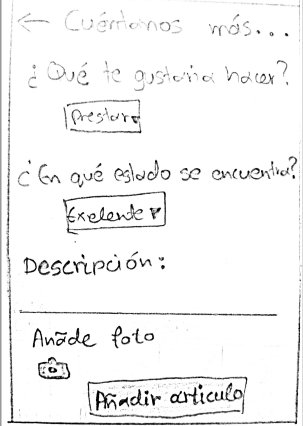 ← Cuéntanos más...
¿Qué te gustaria hacer?
Prestar▾
¿En qué estado se encuentra?
Exelente ▾
Descripción:
Añade foto
Añadir articulo